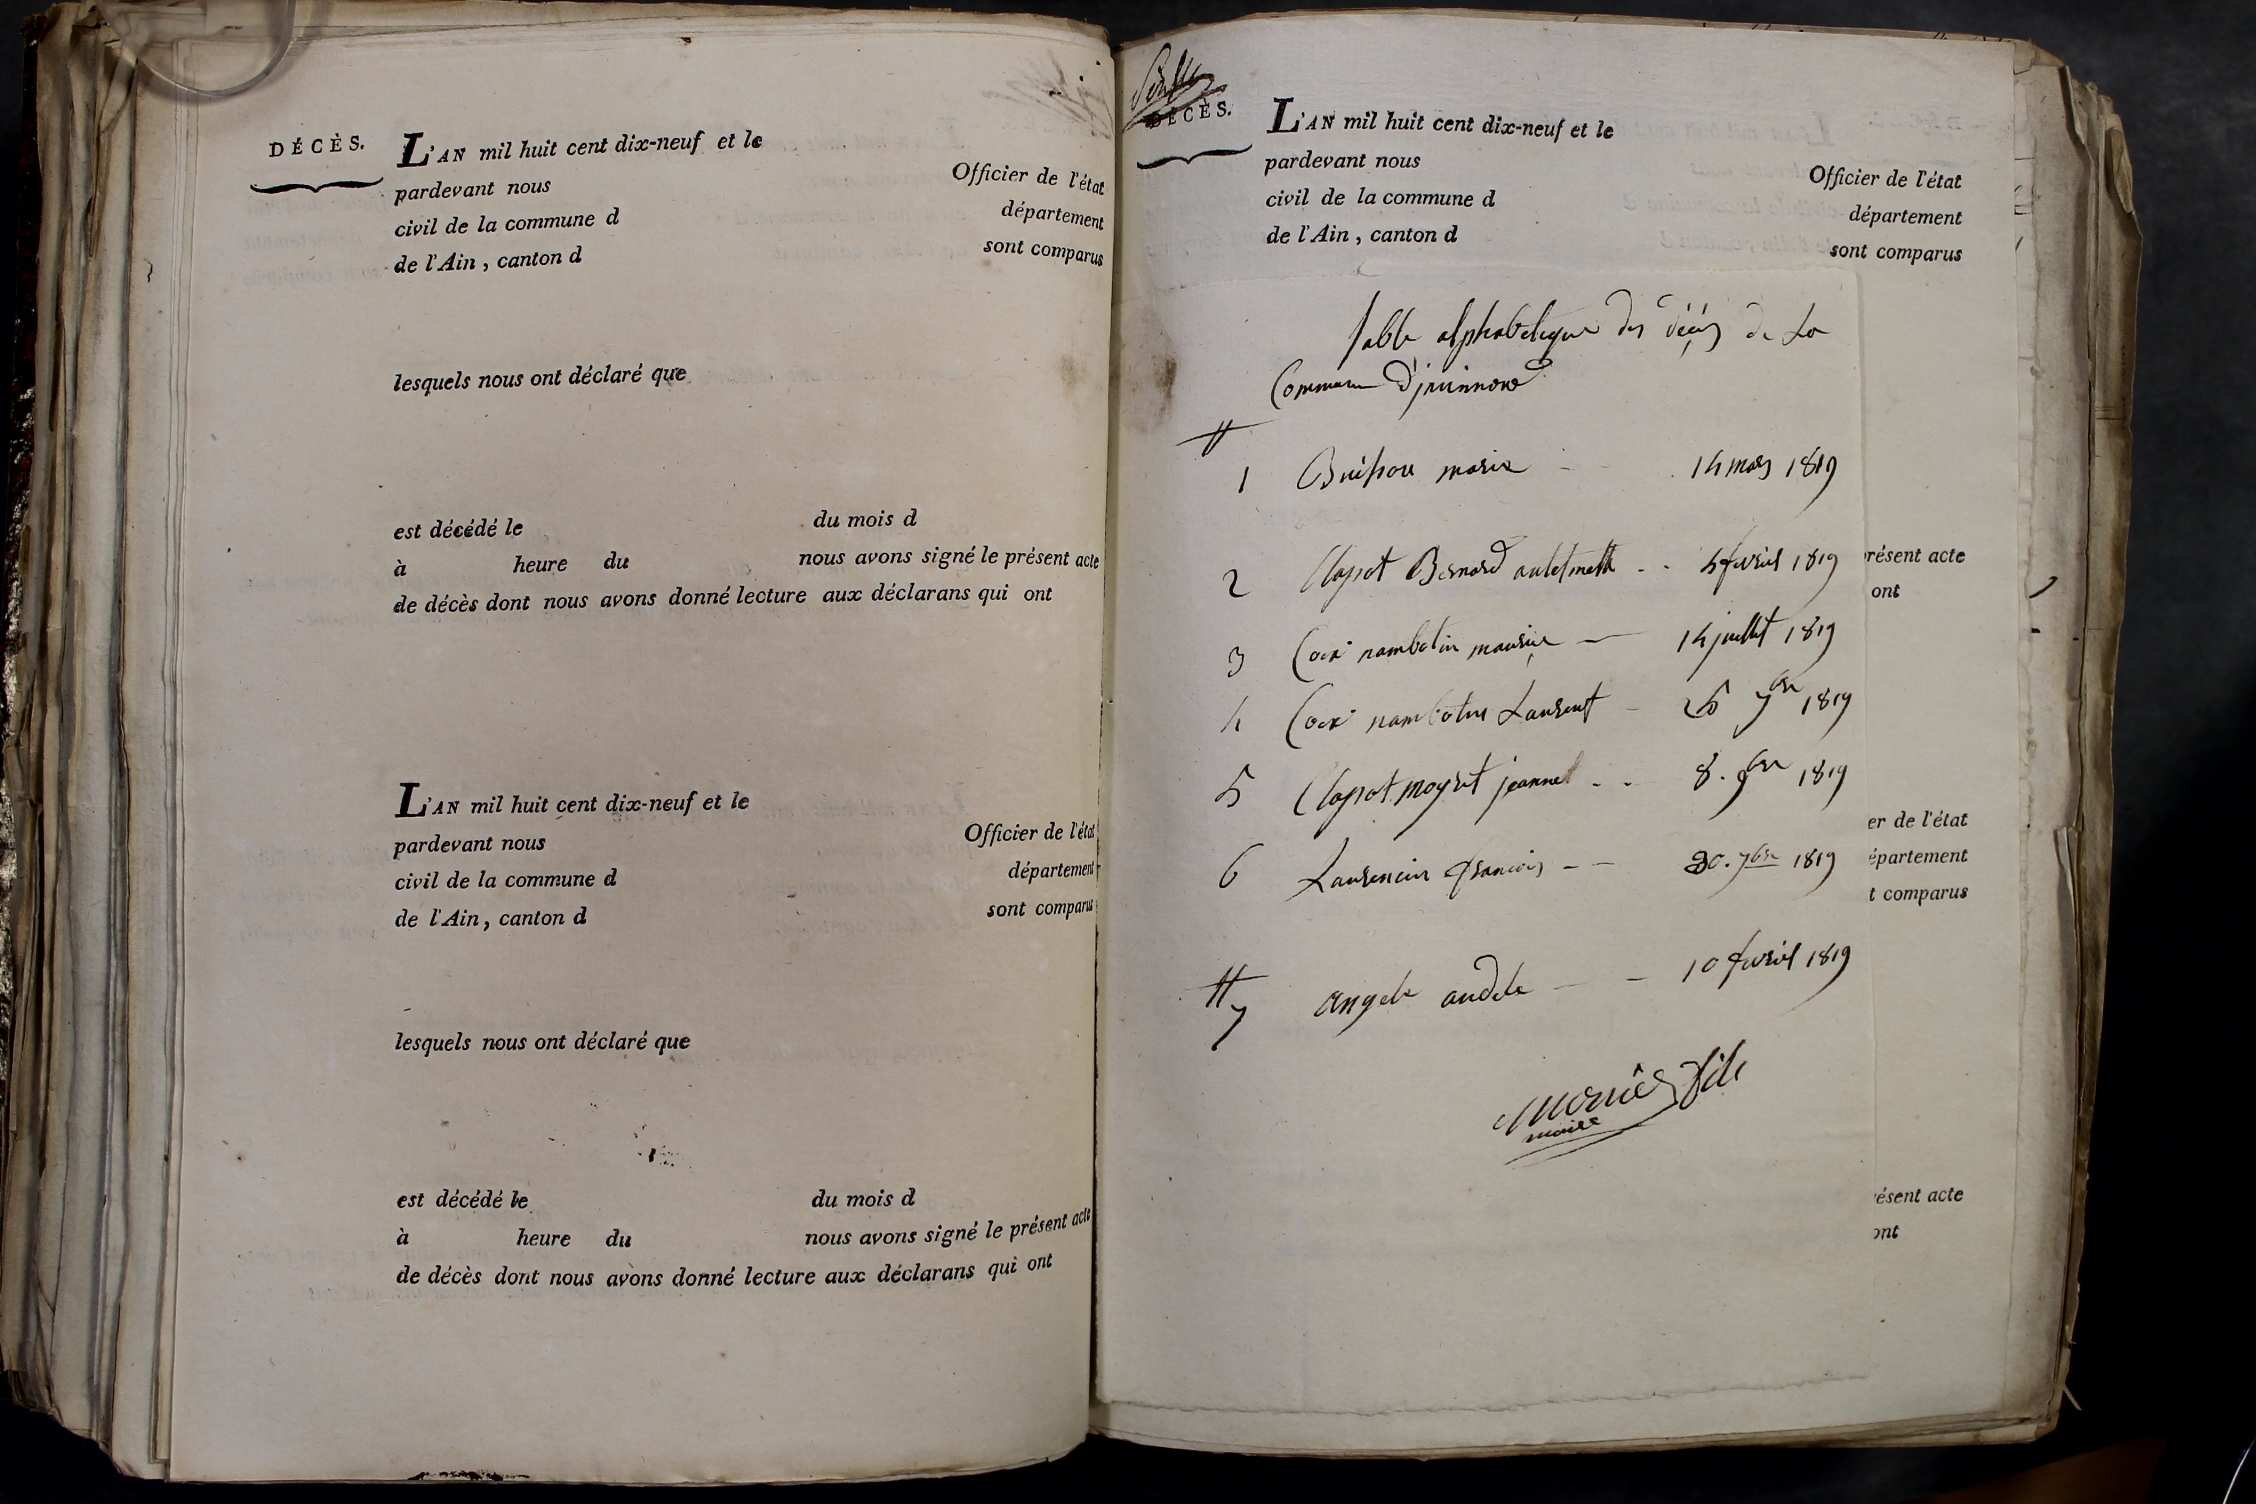 DÉCÈS.
L'AN mil huit cent dix-neuf et le
pardevant nous Officier de l'état
civil de la commune d département
de l'Ain, canton d sont comparus
lesquels nous ont déclaré que
est décédé le du mois d
à heure du nous avons signé le présent acte
de décès dont nous avons donné lecture aux déclarans qui ont
L'AN mil huit cent dix-neuf et le
pardevant nous Officier de l'état
civil de la commune d département
de l'Ain, canton d sont comparus
lesquels nous ont déclaré que
est décédé le du mois d
à heure du nous avons signé le présent acte
de décès dont nous avons donné lecture aux déclarans qui ont
DÉCÈS.
L'AN mil huit cent dix-neuf et le
pardevant nous Officier de l'état
civil de la commune d département
de l'Ain, canton d sont comparus
table alphabetique des décés de La
Commune
1 Buisson marie 14 mars 1819
2 Clapot Bernard 4 fevrier 1819
résent acte
ont
3 nambotin maurice 14 juillet 1819
4 nambotin Laurent 25 7bre 1819
5 Clapot moyret jeannet 8. 9bre 1819
er de l'état
6 Laurencin francois 30. 7bre 1819
épartement
t comparus
7 angele audele 10 fevrier 1819
fils
maire
ésent acte
ont